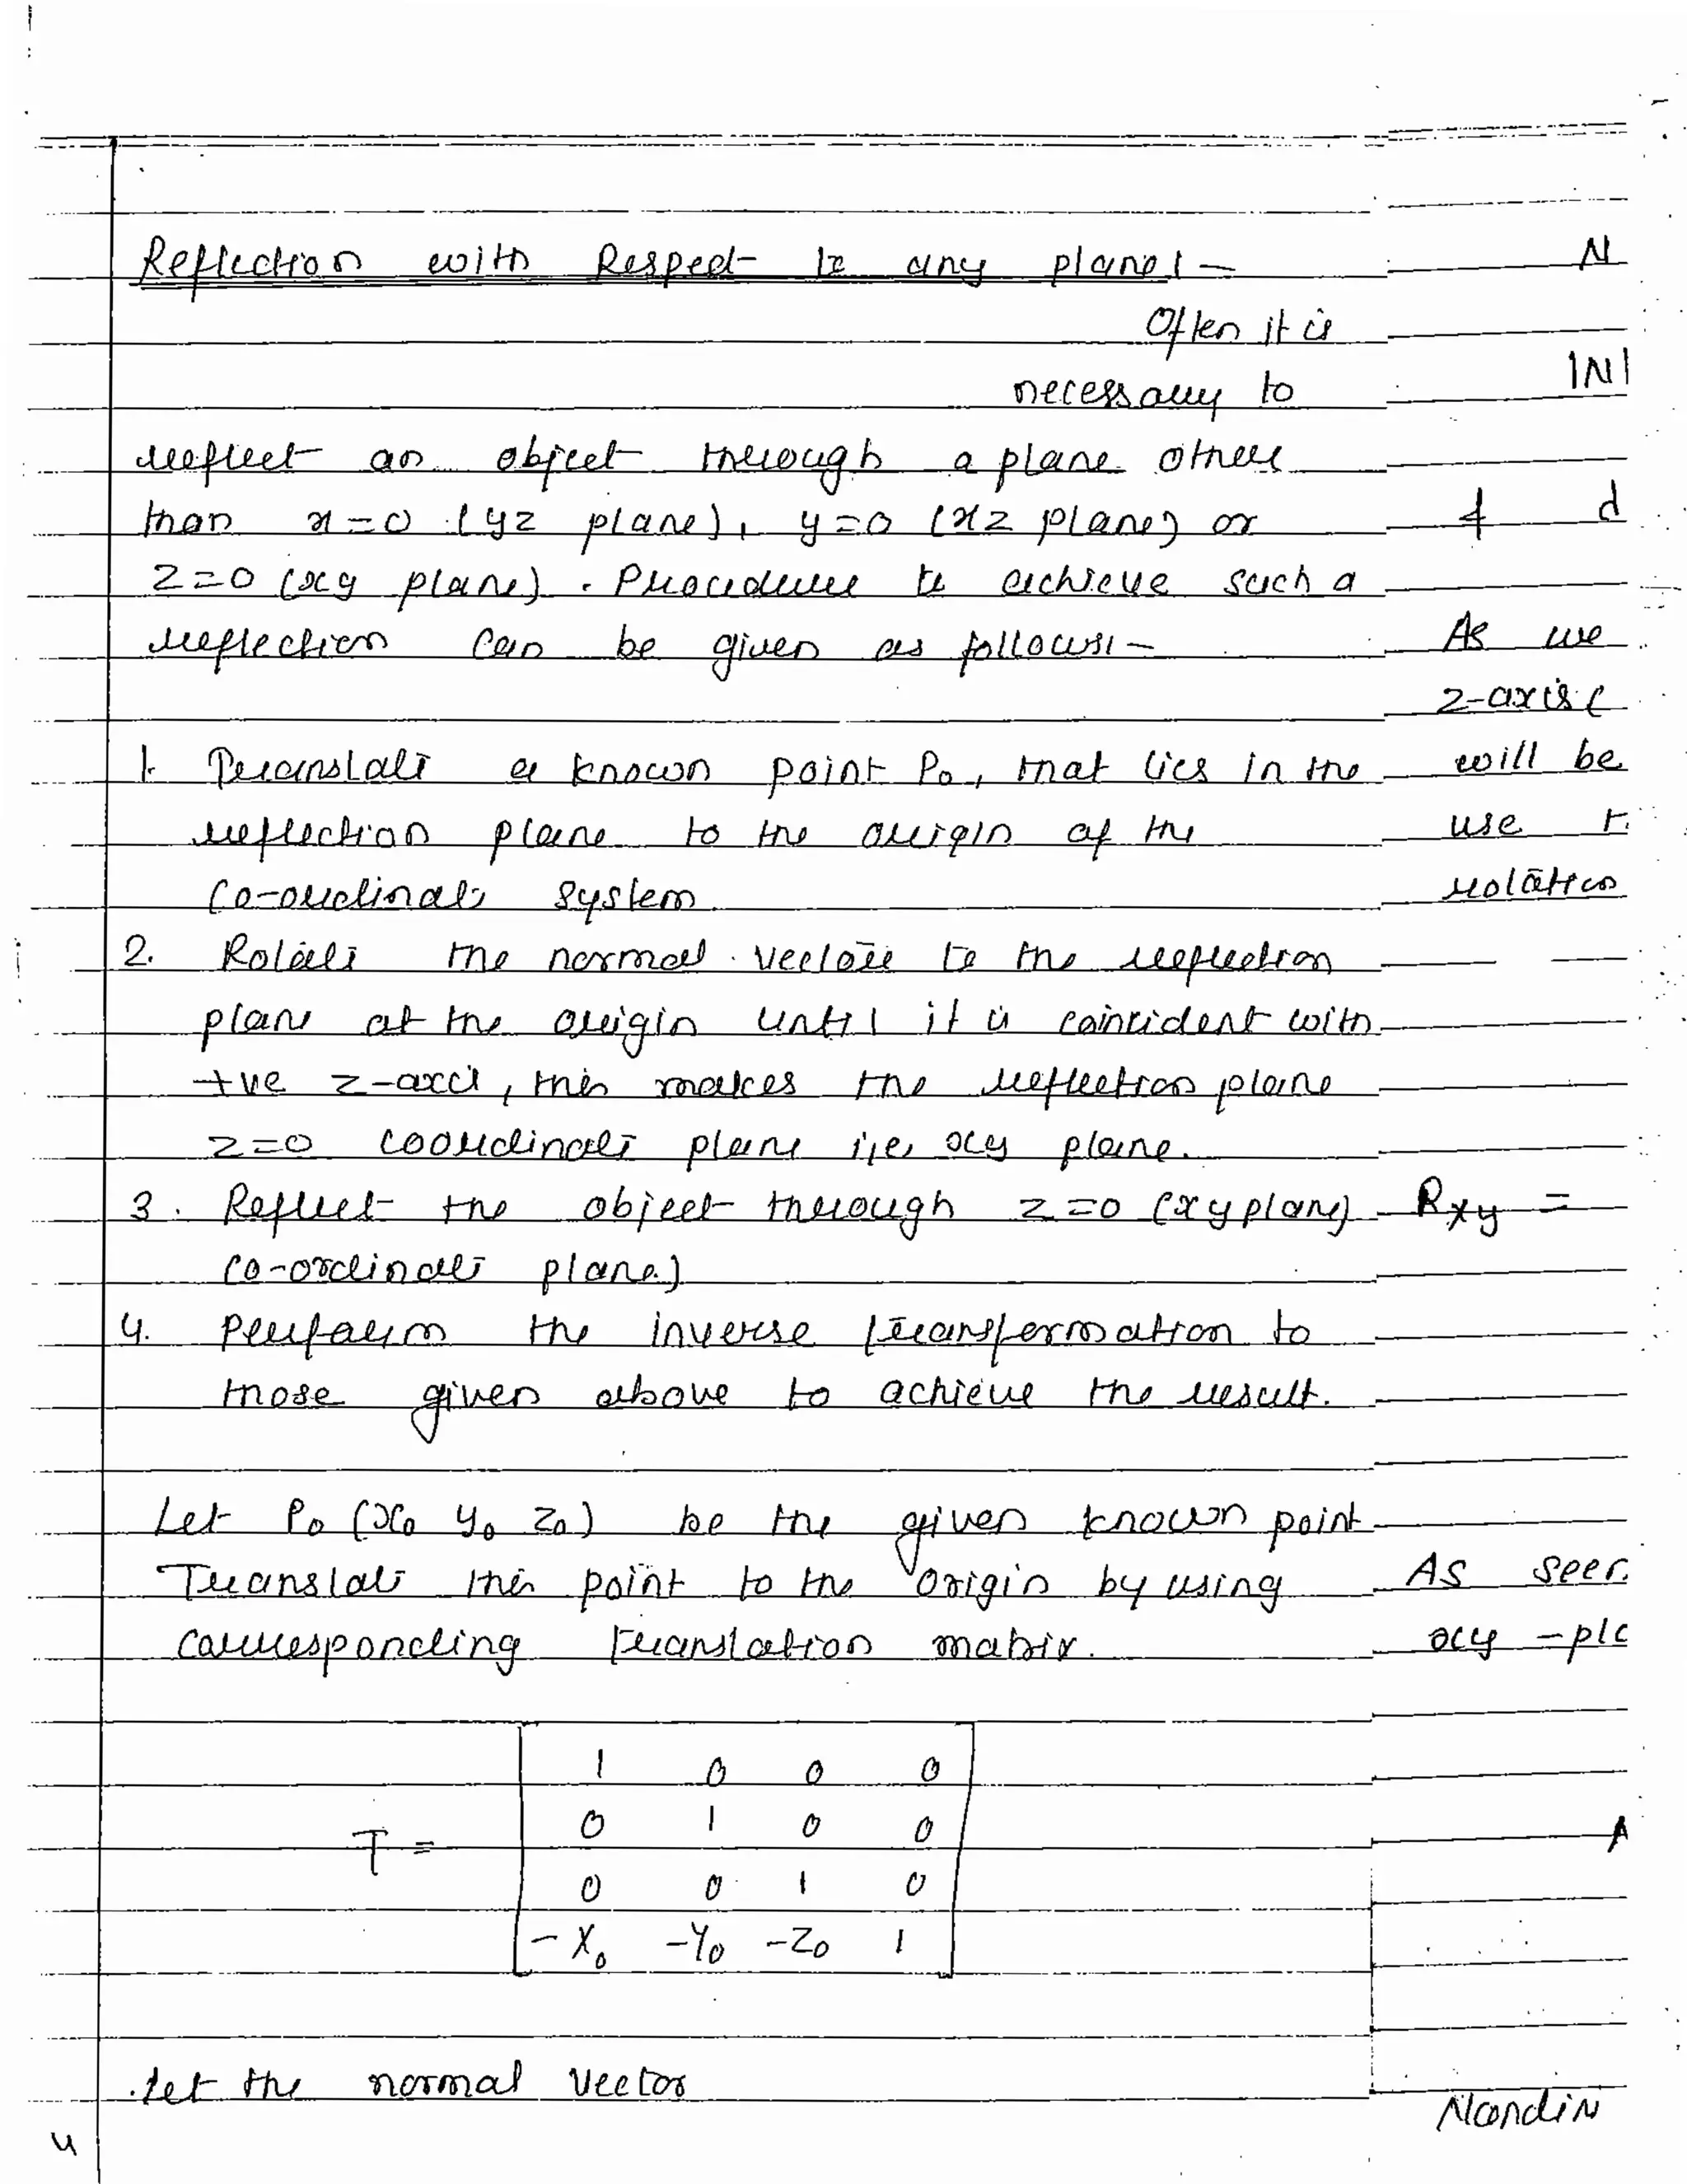 Reflection with Respect to any plane :-
Often it is
necessary to
reflect an object through a plane other
than x=0 (yz plane), y=0 (xz plane) or
z=0 (xy plane). Procedure to achieve such a
reflection can be given as follows:-
1. Translate a known point P0, that lies in the
reflection plane to the origin of the
co-ordinate system
2. Rotate the normal vector to the reflection
plane at the origin until it is coincident with
+ve z-axis, this makes the reflection plane
z=0 coordinate plane i.e, xy plane.
3. Reflect the object through z=0 (xy plane)
co-ordinate plane)
4. Perform the inverse transformation to
those given above to achieve the result.
Let P0 (x0 y0 z0) be the given known point
Translate this point to the origin by using
corresponding translation matrix.
1 0 0 0
0 1 0 0
T =
0 0 1 0
-X0 -Y0 -Z0 1
let the normal vector
4
N
|N|
d
As we
z-axis (
will be
use t
rotation
Rxy =
As seen
xy - pla
A
NandiN